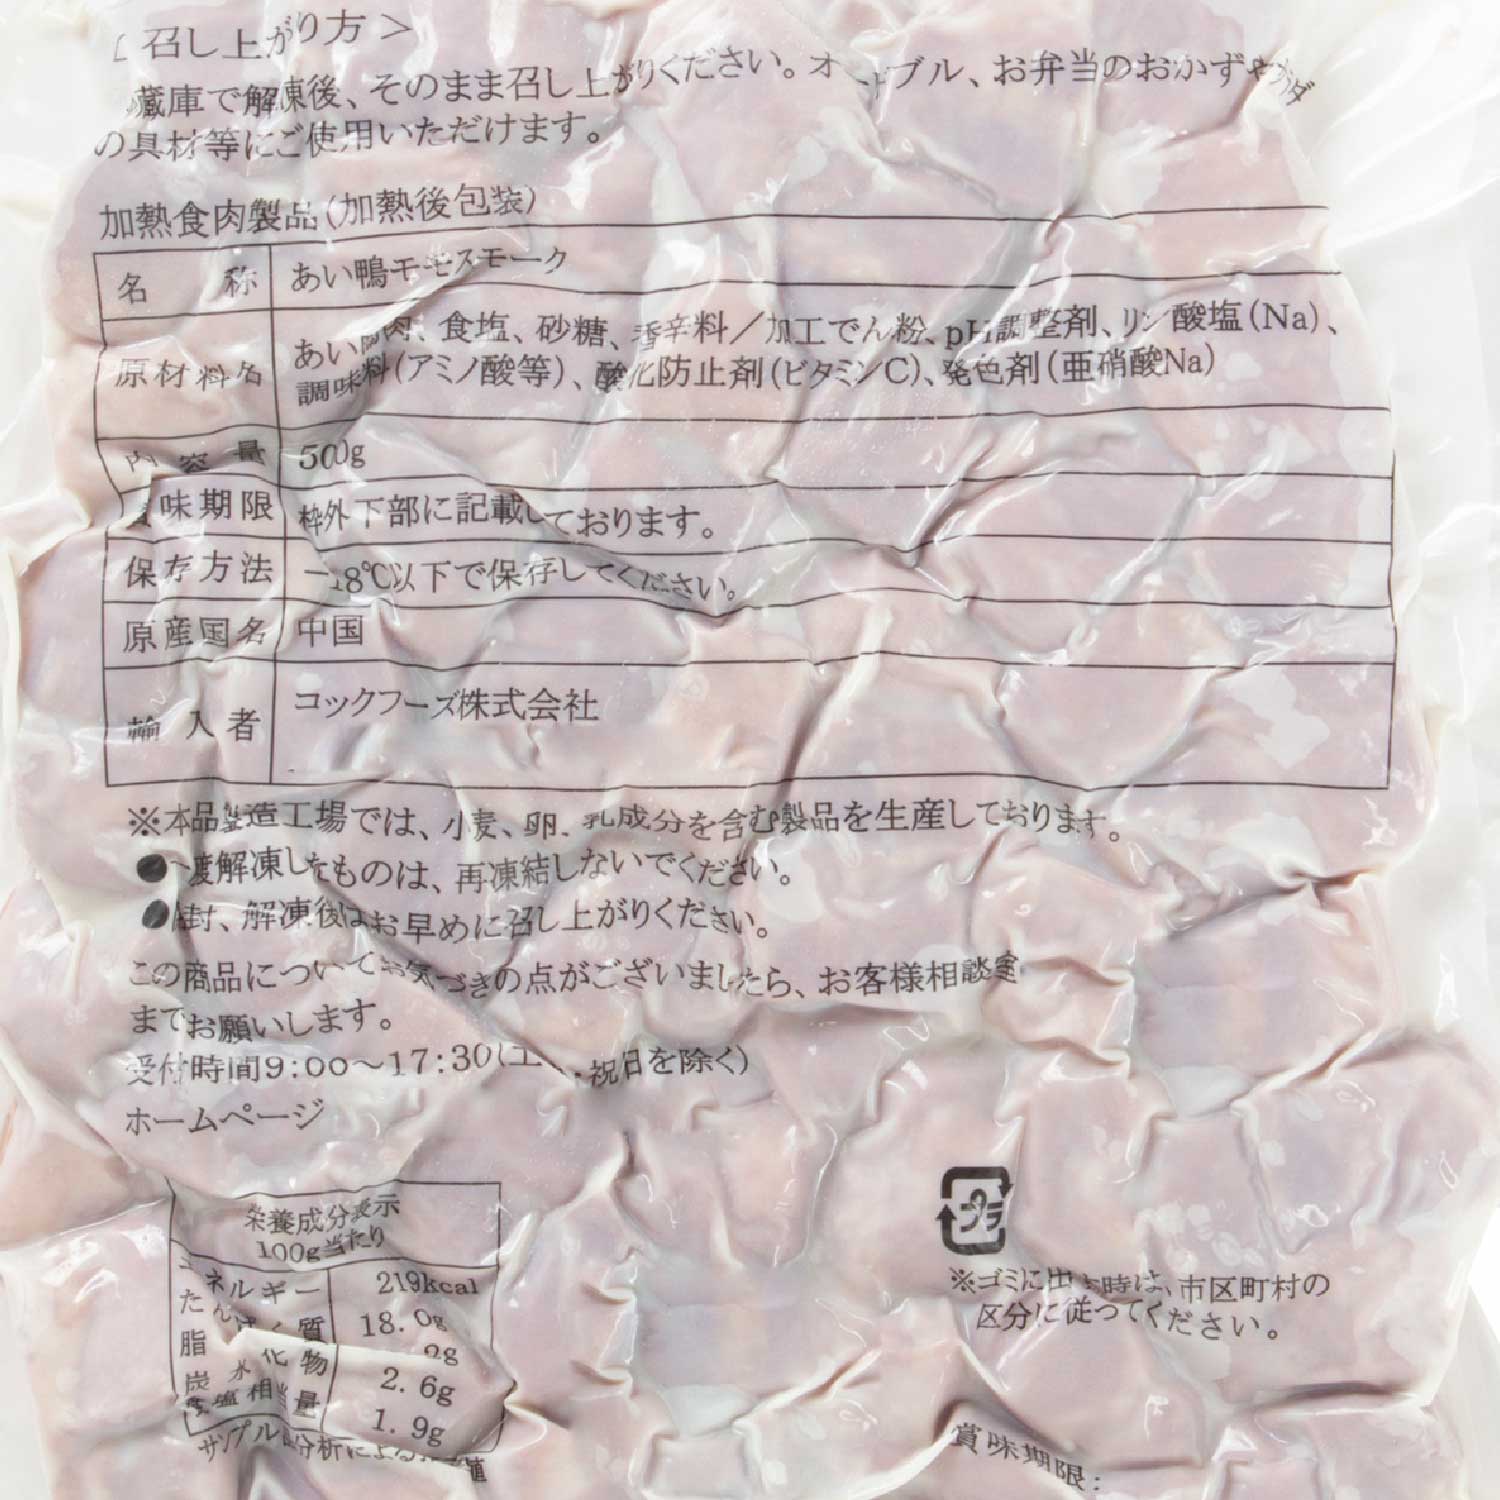 召し上がり方＞
蔵庫で解凍後、そのまま召し上がりください。オ ブル、お弁当のおかずや
の具材等にご使用いただけます。
加熱食肉製品(加熱後包装)
名称 あい鴨モモスモーク
原材料名 あい鴨肉、食塩、砂糖、香辛料／加工でん粉、pH調整剤、リン酸塩(Na)、
調味料(アミノ酸等)、酸化防止剤(ビタミンC)、発色剤(亜硝酸Na)
内容量 500g
味期限 枠外下部に記載しております。
保存方法 −18℃以下で保存してください。
原産国名 中国
輸入者 コックフーズ株式会社
※本品製造工場では、小麦、卵、乳成分を含む製品を生産しております。
●一度解凍したものは、再凍結しないでください。
●開封、解凍後はお早めに召し上がりください。
この商品についてお気づきの点がございましたら、お客様相談室
までお願いします。
受付時間9:00〜17:30(土 ・祝日を除く)
ホームページ
栄養成分表示
100g当たり
エネルギー 219kcal
たんぱく質 18.0g
脂 2g
炭水化物 2.6g
食塩相当量 1.9g
サンプル 分析による 値
プラ
※ゴミに出す時は、市区町村の
区分に従ってください。
賞味期限: